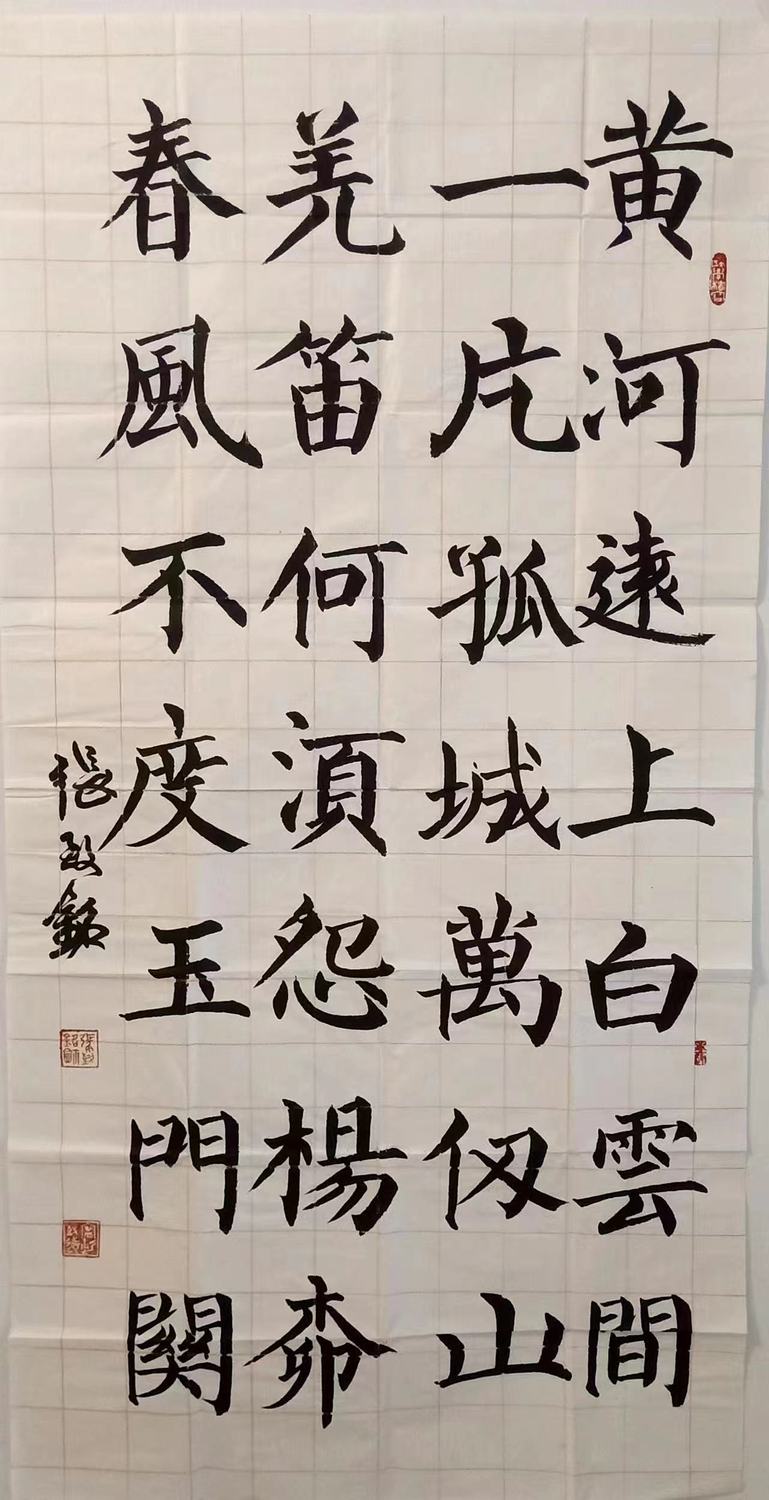 黄河遠上白雲間
一片孤城萬仞山
羌笛何須怨楊桺
春風不度玉門関
張政銘